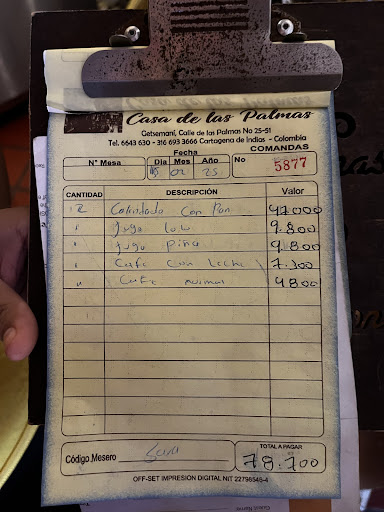 Casa de las Palmas
Getsemaní, Calle de las Palmas No 25-51
Tel. 6643 630 - 316 693 3666 Cartagena de Indias - Colombia
COMANDAS
N° Mesa
Fecha
Día Mes Año
02 25
No 5877
CANTIDAD DESCRIPCIÓN Valor
2 Calentado Con Pan 47000
1 Jugo Lulo 9.800
1 Jugo Piña 9.800
1 Cafe Con Leche
1 Cafe 4800
Código Mesero Sara
TOTAL A PAGAR
78.700
OFF-SET IMPRESION DIGITAL NIT